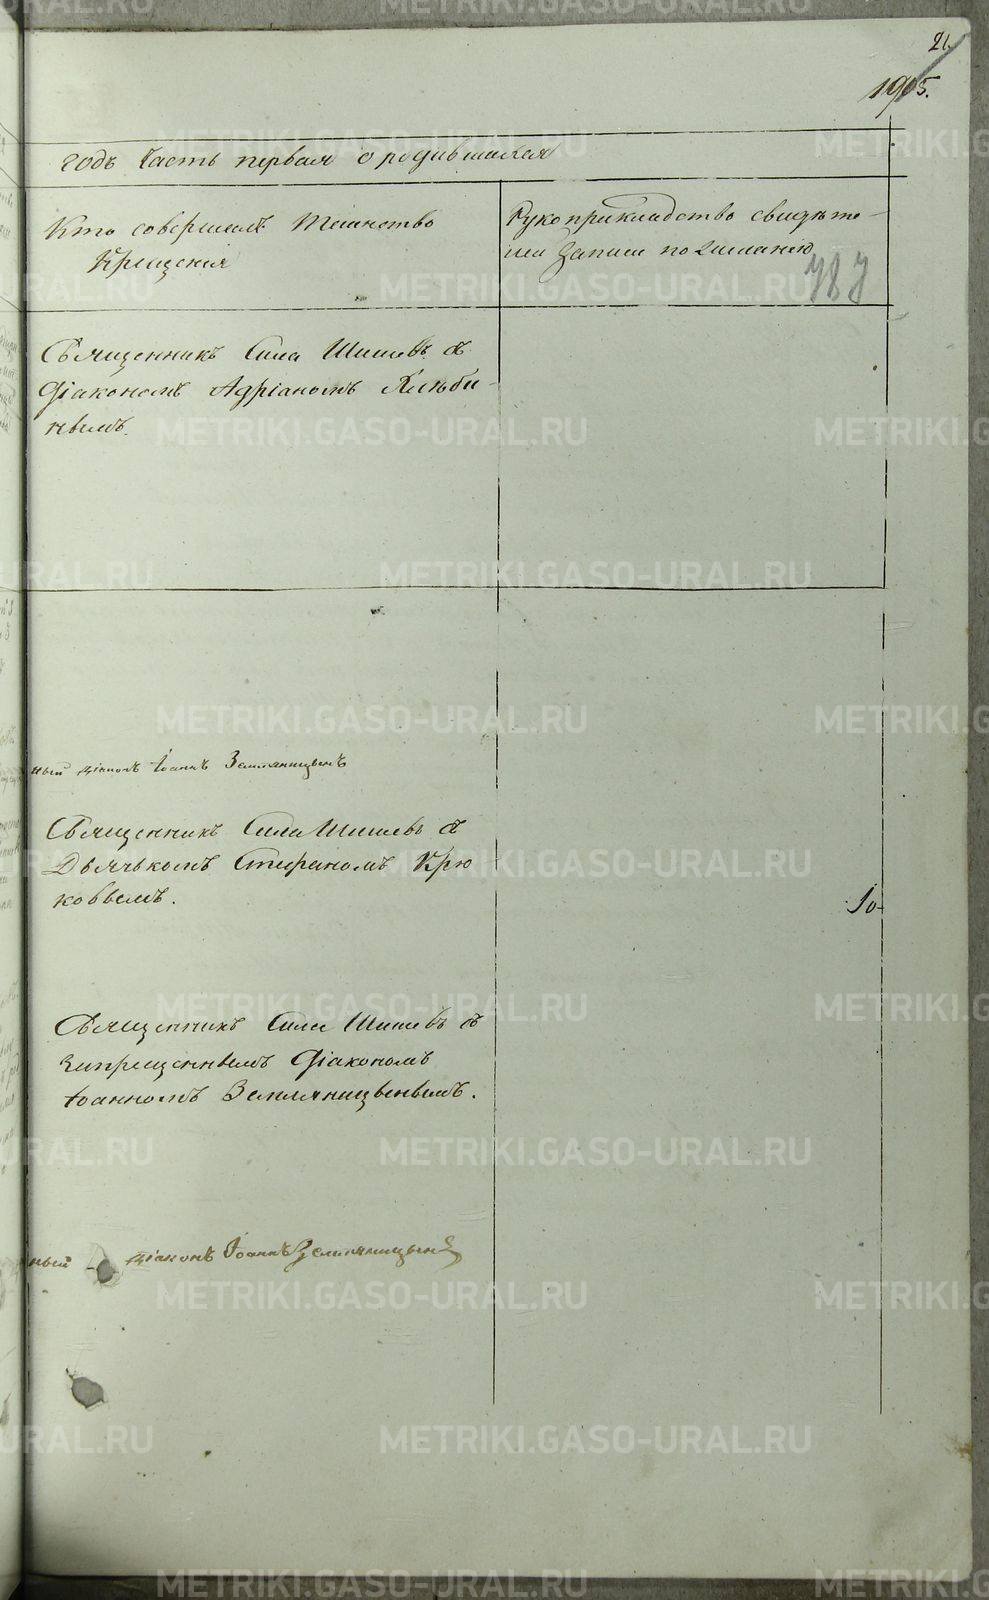 21.
1905.
годъ Часть первая о родившихся
Кто совершалъ таинство
Крещенія
Рукоприкладство свидѣте-
лей записи по желанію
787
Священникъ Сила Шишевъ съ
Діакономъ Адріаномъ Хлѣби-
нымъ.
ный діаконъ Іоаннъ Земляницынъ
Священникъ Сила Шишевъ съ
Дьячькомъ Стефаномъ Крю
ковымъ.
10-
Священникъ Сила Шишевъ съ
запрещеннымъ Діакономъ
Іоанномъ Земляницынымъ.
ный діаконъ Іоаннъ Земляницынъ
METRIKI.GASO-URAL.RU